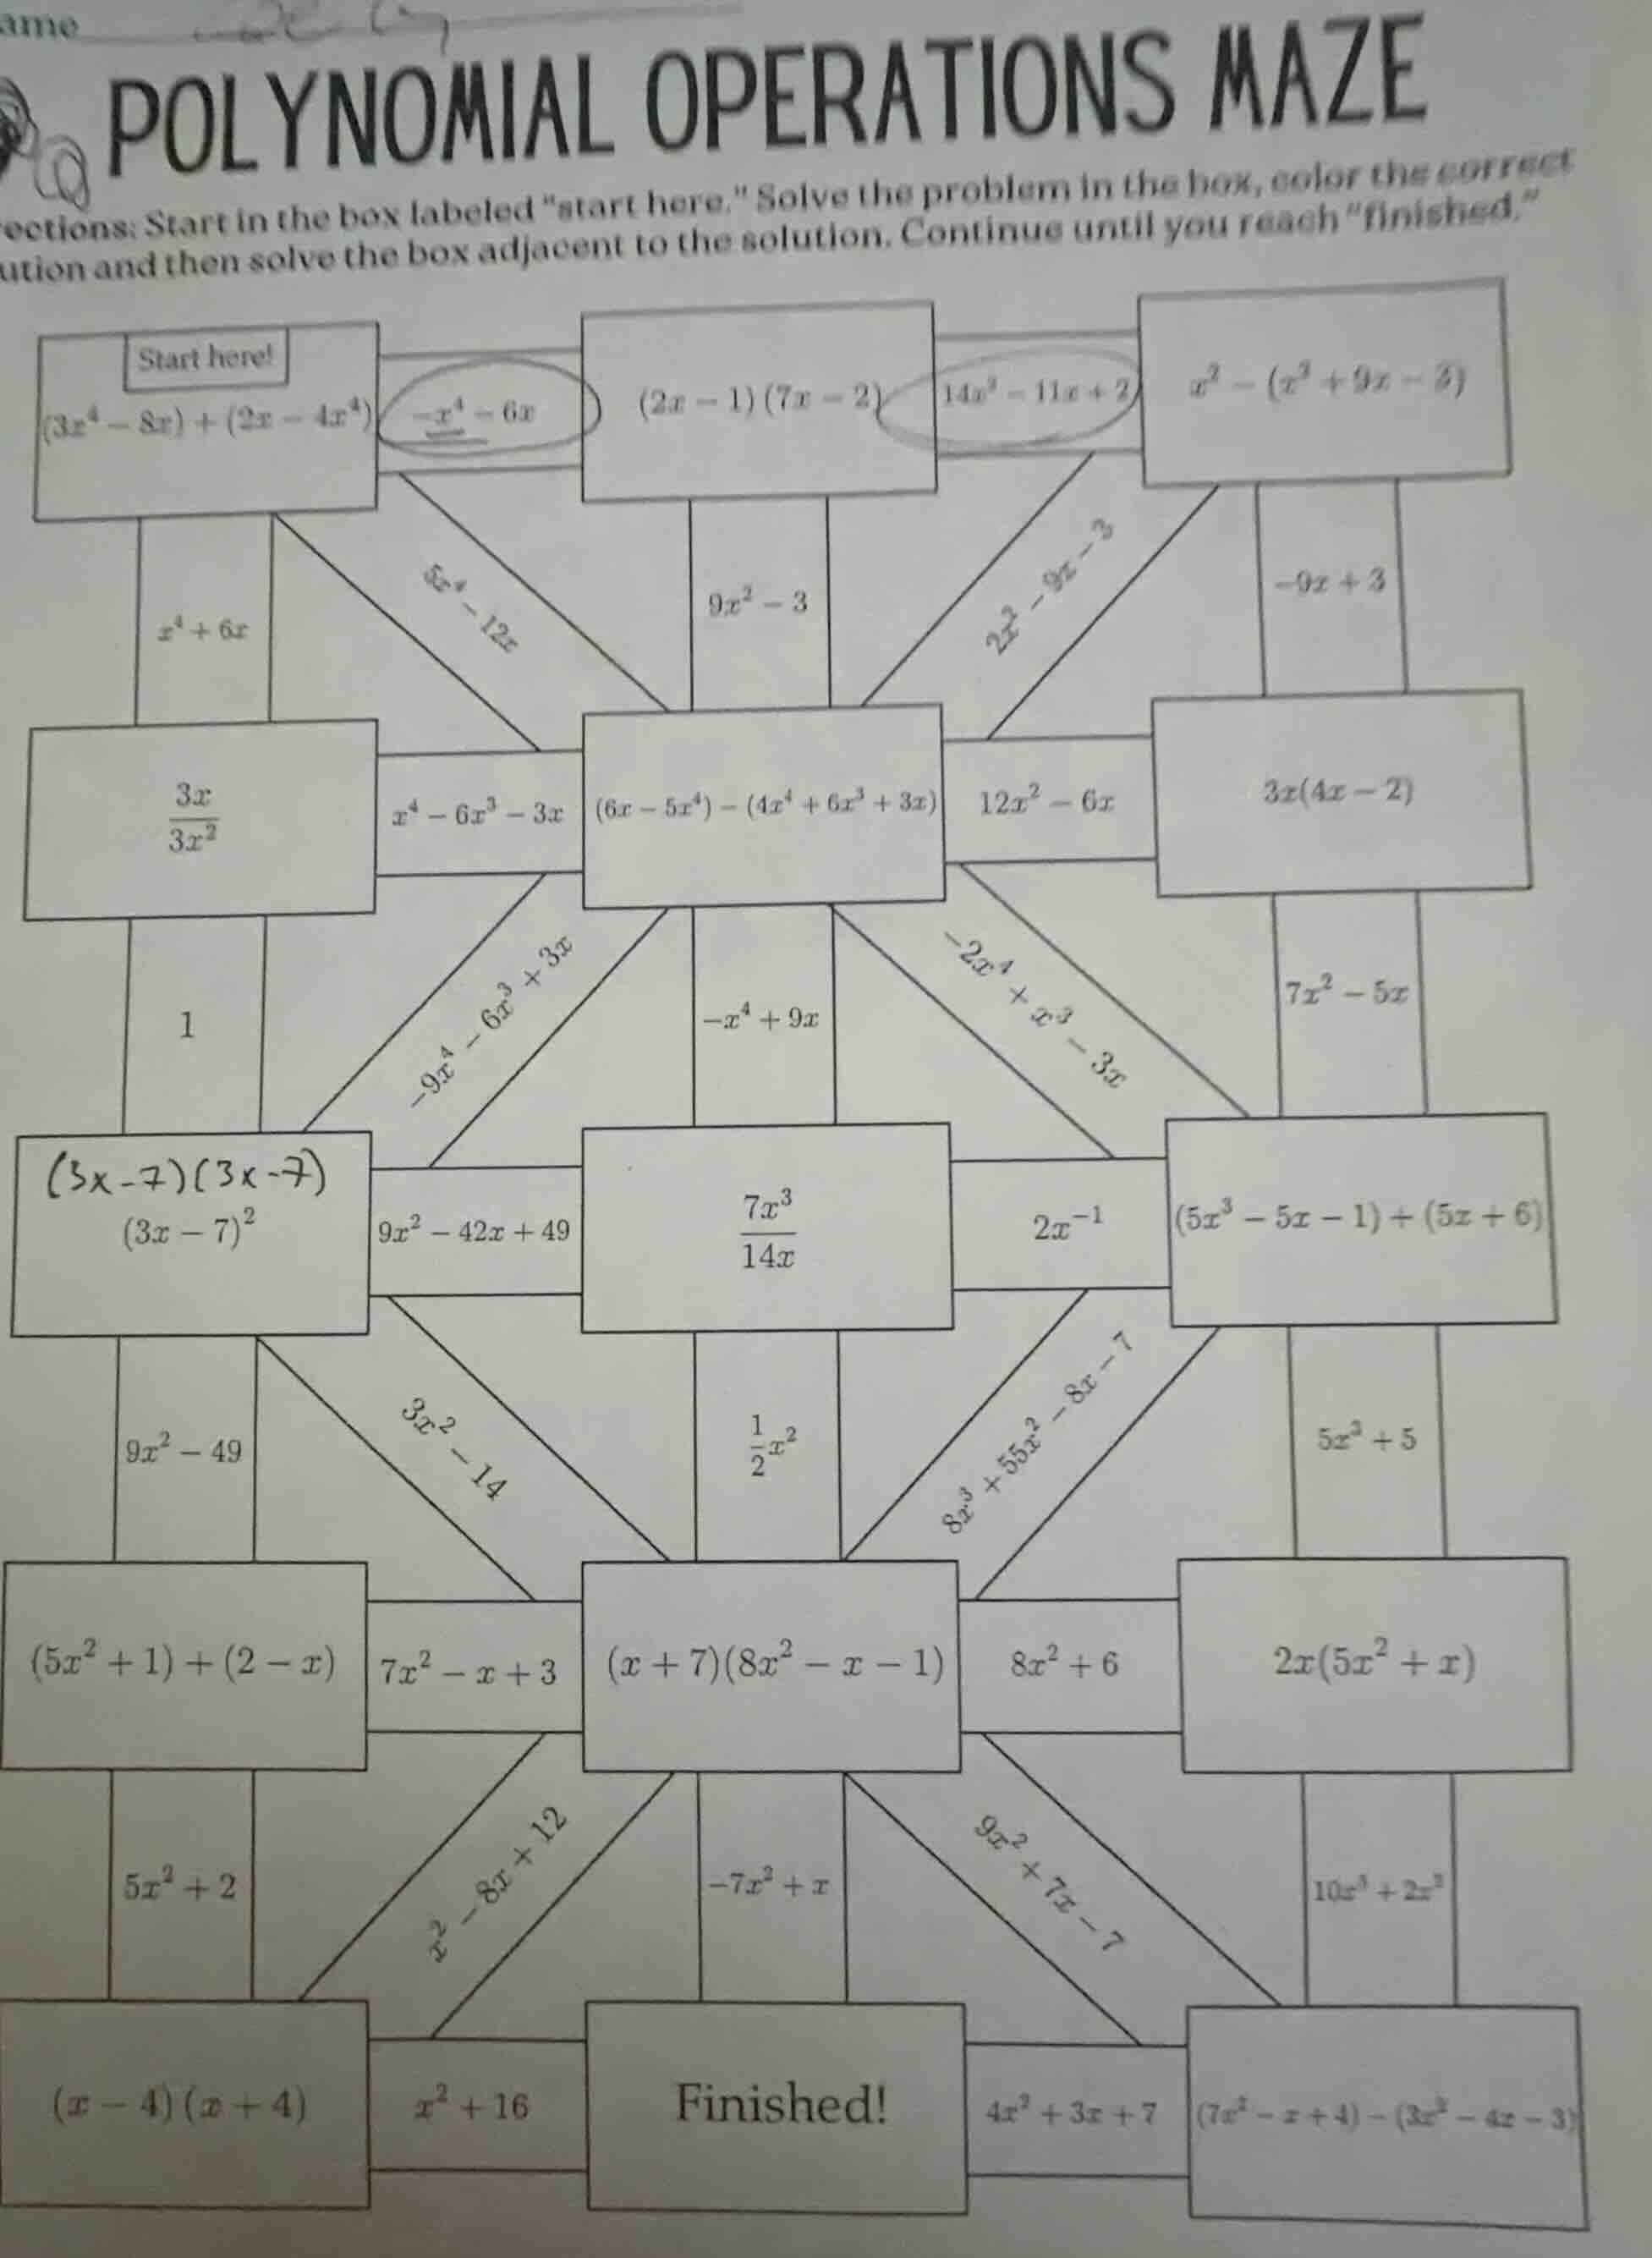 ame
POLYNOMIAL OPERATIONS MAZE
rections: Start in the box labeled "start here." Solve the problem in the box, color the correct
ution and then solve the box adjacent to the solution. Continue until you reach "finished."
Start here!
(3x⁴ − 8x) + (2x − 4x⁴)
−x⁴ − 6x
(2x − 1)(7x − 2)
14x² − 11x + 2
x² − (x² + 9x − 3)
x⁴ + 6x
5x⁴ − 12x
9x² − 3
2x² − 9x − 3
−9x + 3
3x/3x²
x⁴ − 6x³ − 3x
(6x − 5x⁴) − (4x⁴ + 6x³ + 3x)
12x² − 6x
3x(4x − 2)
1
−9x⁴ − 6x³ + 3x
−x⁴ + 9x
−2x⁴ + x³ − 3x
7x² − 5x
(3x-7)(3x-7)
(3x − 7)²
9x² − 42x + 49
7x³/14x
2x⁻¹
(5x³ − 5x − 1) + (5x + 6)
9x² − 49
3x² − 14
1/2x²
8x³ + 55x² − 8x − 7
5x³ + 5
(5x² + 1) + (2 − x)
7x² − x + 3
(x + 7)(8x² − x − 1)
8x² + 6
2x(5x² + x)
5x² + 2
x² − 8x + 12
−7x² + x
9x² + 7x − 7
10x³ + 2x²
(x − 4)(x + 4)
x² + 16
Finished!
4x² + 3x + 7
(7x² − x + 4) − (3x² − 4x − 3)